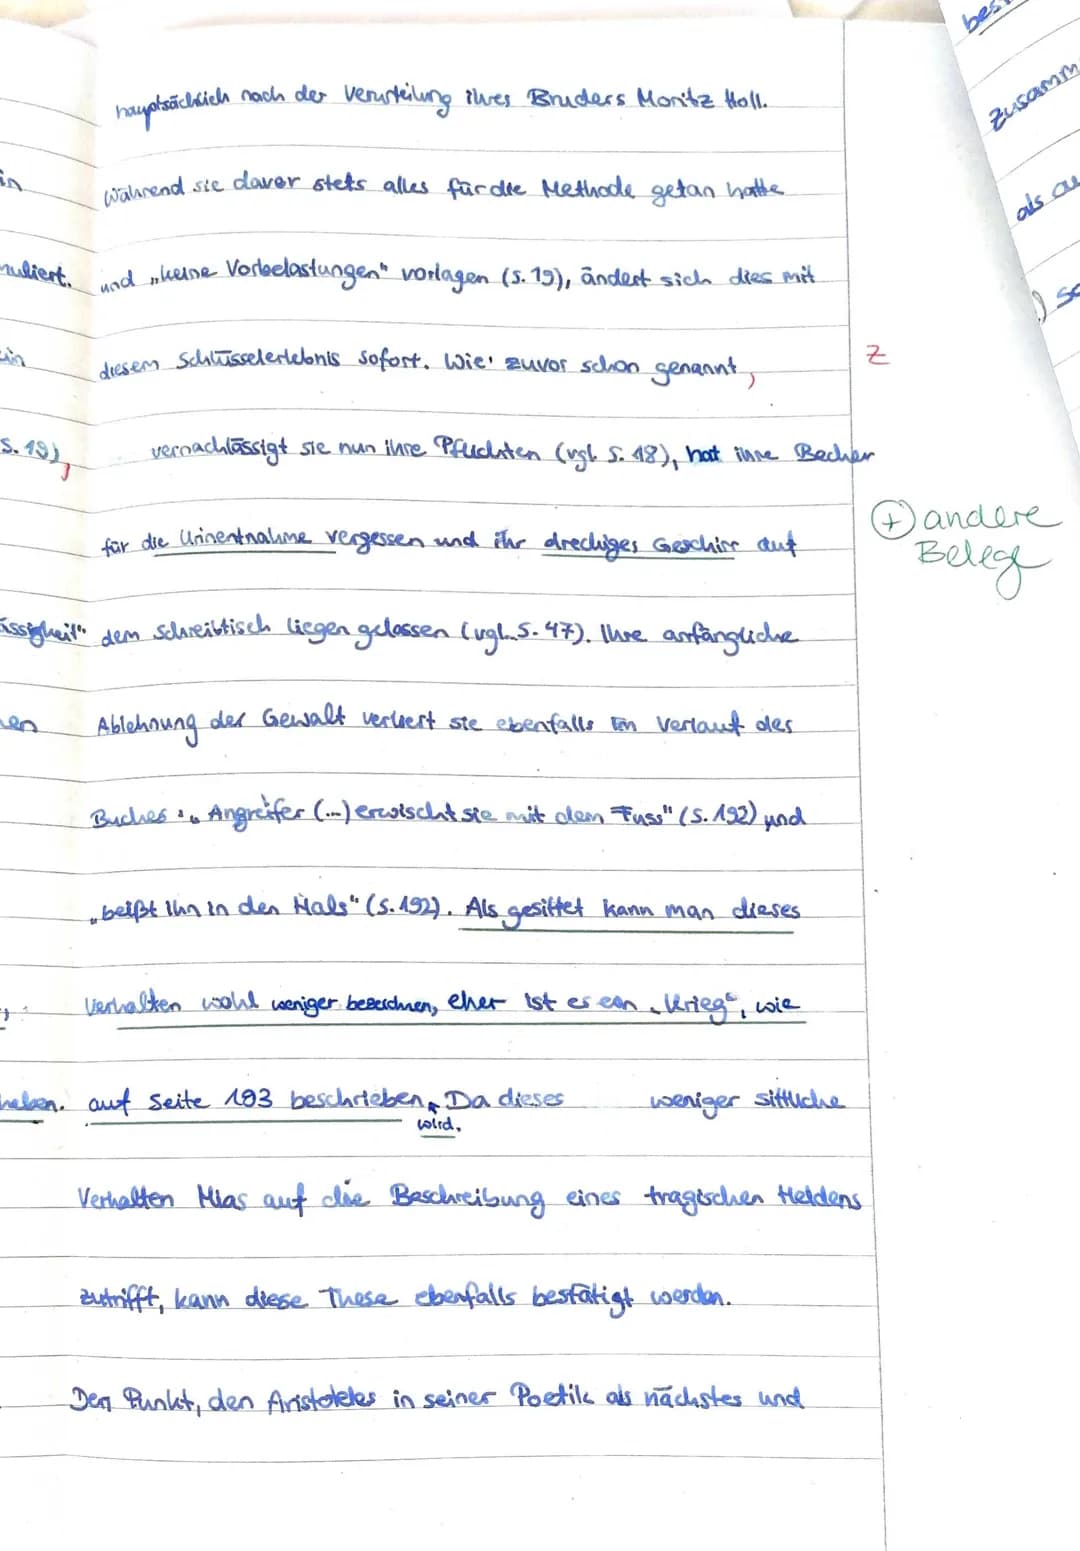 bes
zusamm
als au
) so
hauptsächlich nach der Verurteilung ihres Bruders Moritz Holl.
in
Während sie davor stets alles für die Methode getan hatte
muliert.
und „keine Vorbelastungen" vorlagen (S. 19), ändert sich dies mit
ein
diesem Schlüsselerlebnis sofort. Wie zuvor schon genannt,
Z
S. 19),
vernachlässigt sie nun ihre Pflichten (vgl. S. 48), hat ihre Becher
+ andere
Belege
für die Urinentnahme vergessen und ihr dreckiges Geschirr auf
ässigkeit"
dem Schreibtisch liegen gelassen (vgl. S. 47). Ihre anfängliche
en
Ablehnung der Gewalt verliert sie ebenfalls im Verlauf des
Buches: „Angreifer (...) erwischt sie mit dem Fuss" (S. 192) und
„beißt ihn in den Hals" (S. 192). Als gesittet kann man dieses
Verhalten wohl weniger bezeichnen, eher ist es ein „Krieg", wie
haben.
auf Seite 193 beschrieben wird. Da dieses weniger sittliche
Verhalten Mias auf die Beschreibung eines tragischen Heldens
zutrifft, kann diese These ebenfalls bestätigt werden.
Den Punkt, den Aristoteles in seiner Poetik als nächstes und